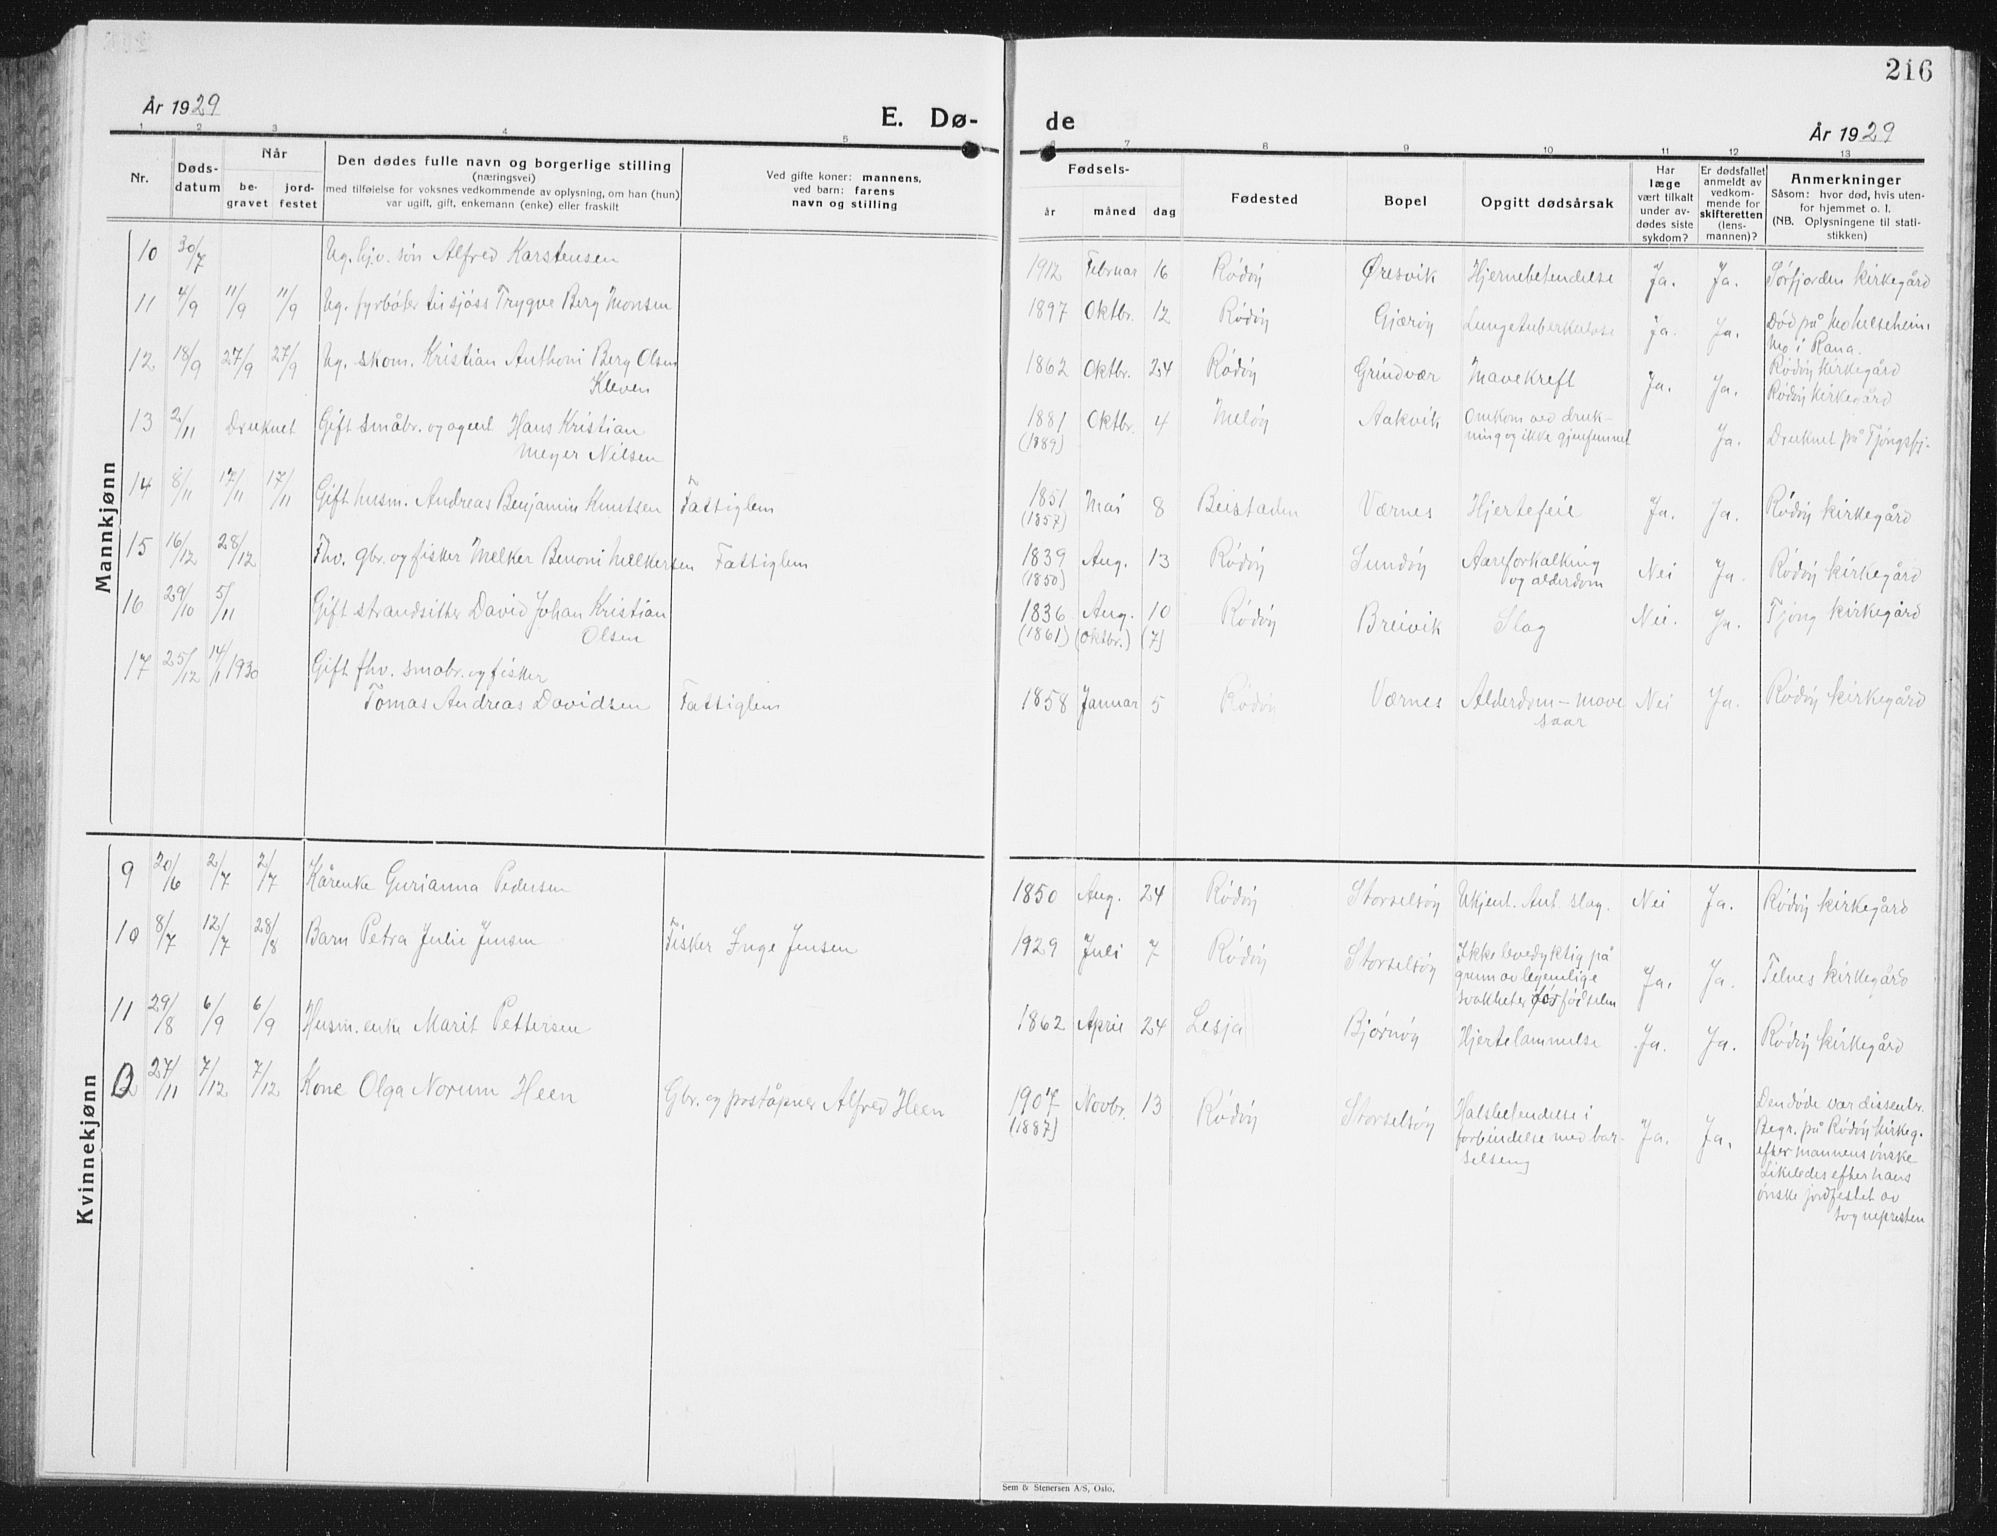 216
År 1929
E. Dø-
de
År 1929
1 2 3 4 5 6 7 8 9 10 11 12 13
Nr.
Døds-
datum
Når
be-
gravet
jord-
festet
Den dødes fulle navn og borgerlige stilling
(næringsvei)
med tilføielse for voksnes vedkommende av oplysning, om han (hun)
var ugift, gift, enkemann (enke) eller fraskilt
Ved gifte koner: mannens,
ved barn: farens
navn og stilling
Fødsels-
år måned dag
Fødested
Bopel
Opgitt dødsårsak
Har
læge
vært tilkalt
under av-
dødes siste
sykdom?
Er dødsfallet
anmeldt av
vedkom-
mende for
skifteretten
(lens-
mannen)?
Anmerkninger
Såsom: hvor død, hvis uten-
for hjemmet o. l.
(NB. Oplysningene til stati-
stikken)
Mannkjønn
10 30/7 Ug. hjv. søn Alfred Karstensen 1912 Februar 16 Rödöy Øresvik Hjernebetendelse Ja. Ja. Sörfjorden kirkegård
11 4/9 11/9 11/9 Ug. fyrböter tilsjöss Trygve Berg Monsen 1897 Oktbr. 12 Rödöy Gjæröy Lungetuberkulose Ja. Ja. Död på Mohelseheim
Mo i Rana.
Rödöy kirkegård
12 18/9 27/9 27/9 Ug. skom. Kristian Anthoni Berg Olsen
Kleven 1862 Oktbr. 24 Rödöy Grindvær Mavekreft Ja. Ja. Rödöy kirkegård
13 2/11 Druknet Gift småbr. og agent Hans Kristian
Meyer Nilsen 1881
(1889) Oktbr. 4 Melöy Aakvik Omkom ved druk-
ning og ikke gjenfunnet Ja. Druknet på Tjongsfj.
14 8/11 17/11 17/11 Gift husm. Andreas Benjamin Knutsen Fattiglem 1851
(1857) Mai 8 Beistaden Værnes Hjertefeil Ja. Ja. Rödöy kirkegård
15 16/12 28/12 Fhv. gbr. og fisker Melker Benoni Melkersen Fattiglem 1839
(1850) Aug. 13 Rödöy Sundöy Aareforkalkning
og alderdom Nei Ja. Rödöy kirkegård
16 29/10 5/11 Gift strandsitter David Johan Kristian
Olsen 1836
(1861) Aug.
(Oktbr.) 10
(7) Rödöy Breivik Slag Nei. Ja. Tjong kirkegård
17 25/12 14/1 1930 Gift fhv. småbr. og fisker
Tomas Andreas Davidsen Fattiglem 1858 Januar 5 Rödöy Værnes Alderdom - mave
saar Nei Ja. Rödöy kirkegård
Kvinnekjønn
9 20/6 2/7 2/7 Kårenke Gurianna Pedersen 1850 Aug. 24 Rödöy Storselsöy Ukjent. Ant. slag. Nei Ja. Rödöy kirkegård
10 8/7 12/7 28/8 Barn Petra Julie Jensen Fisker Inge Jensen 1929 Juli 7 Rödöy Storselsöy Ikke levedyktig på
grunn av legemlige
svakheter før födselen Ja. Ja. Telnes kirkegård
11 29/8 6/9 6/9 Husm. enke Marit Pettersen 1862 April 24 Lesja Bjørnöy Hjertelammelse Ja. Ja. Rödöy kirkegård
12 27/11 7/12 7/12 Kone Olga Norum Heen Gbr. og poståpner Alfred Heen 1907
(1887) Novbr. 13 Rödöy Storselsöy Halsbetendelse i
forbindelse med bar-
selseng Ja. Ja. Den döde var dissenter.
Begr. på Rödöy kirkeg.
efter mannens önske
Likeledes efter hans
önske jordfestet av
sognepresten
Sem & Stenersen A/S, Oslo.